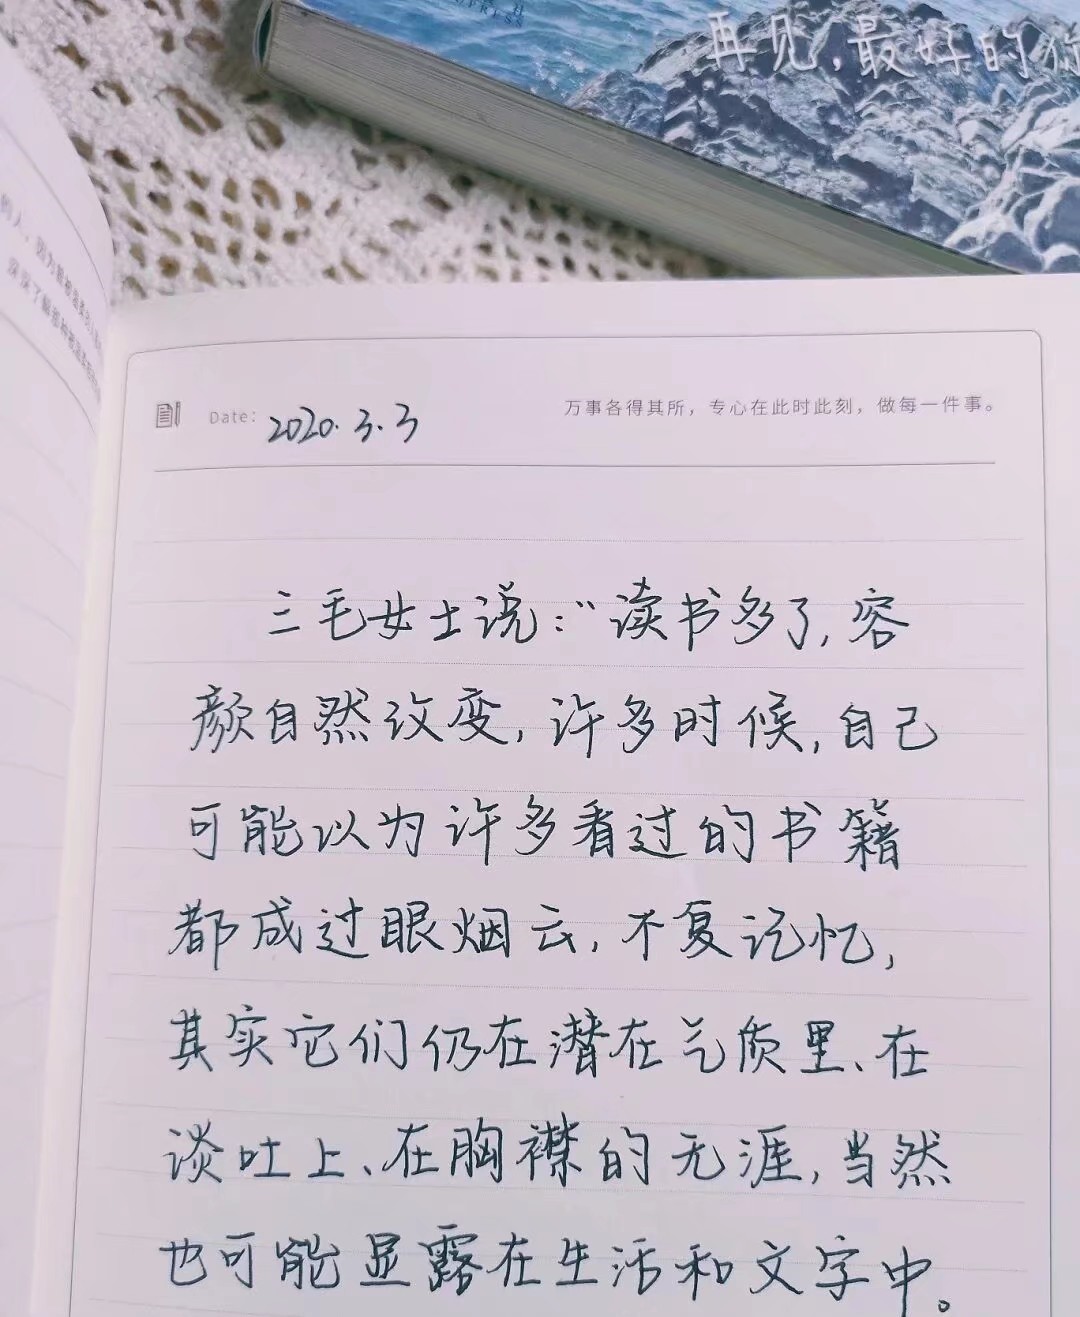 再见,最好的你
Date: 2020.3.3
万事各得其所，专心在此时此刻，做每一件事。
三毛女士说:“读书多了,容
颜自然改变,许多时候,自己
可能以为许多看过的书籍
都成过眼烟云,不复记忆,
其实它们仍在潜在气质里、在
谈吐上、在胸襟的无涯,当然
也可能显露在生活和文字中。